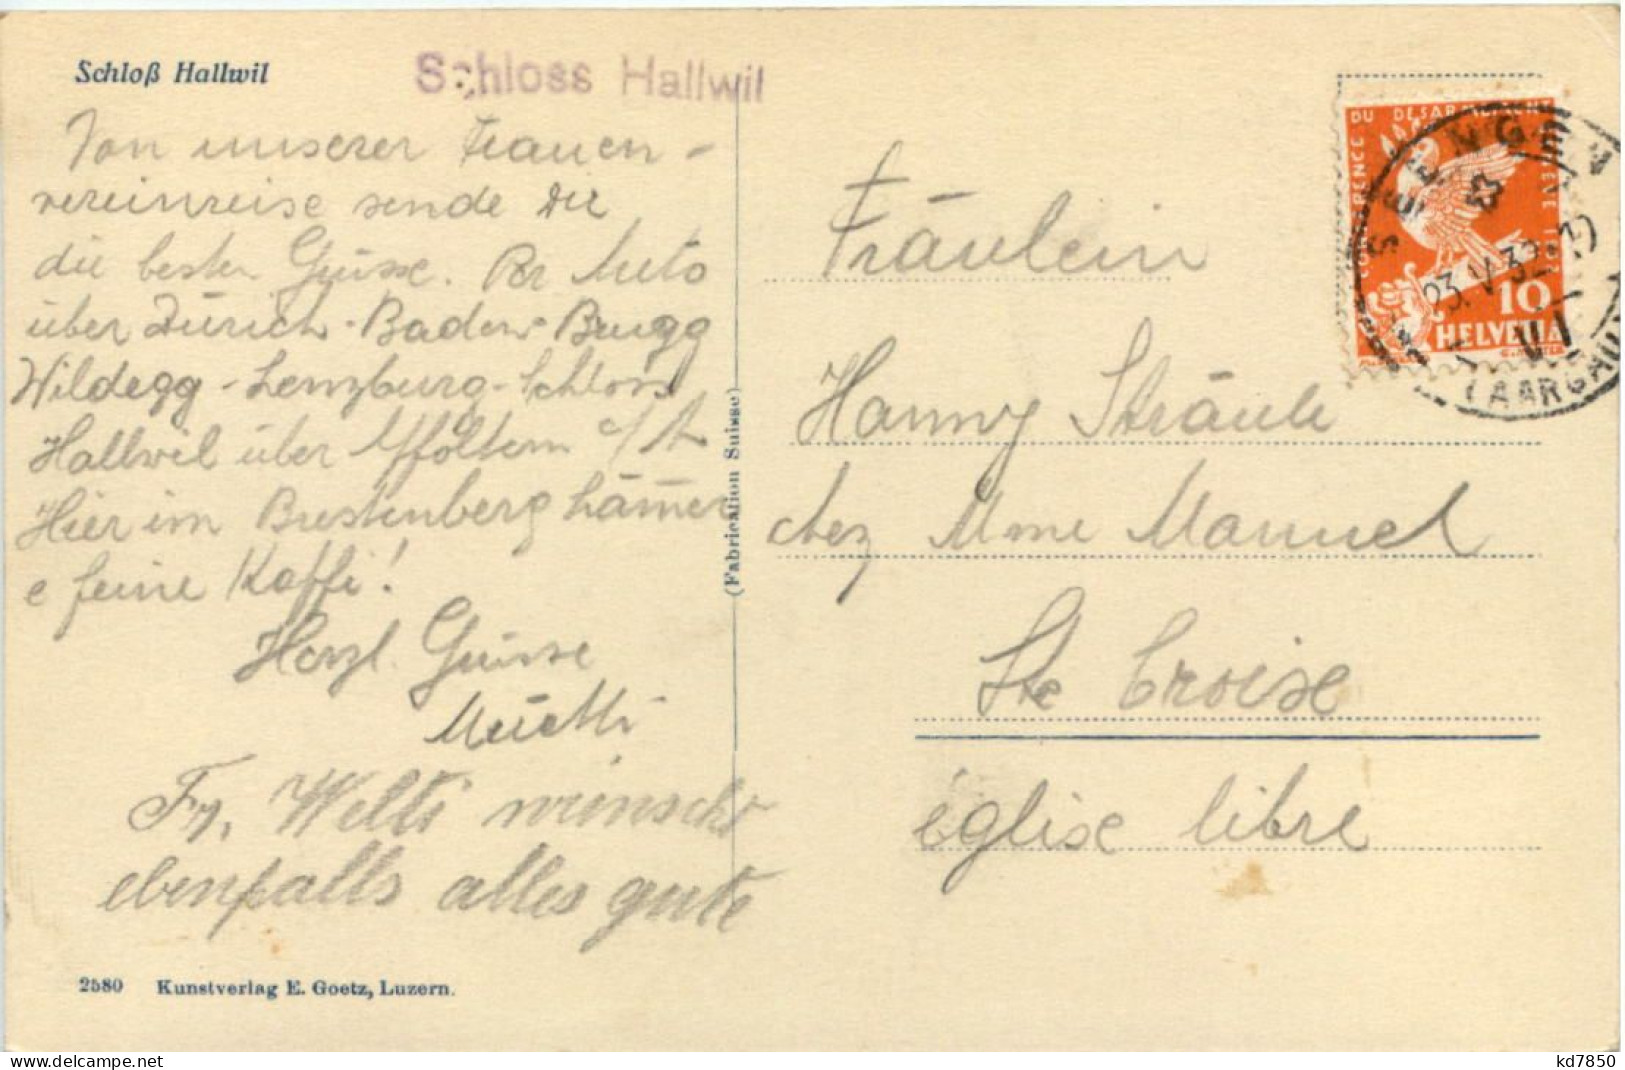 Schloß Hallwil
Schloss Hallwil
Von unserer Frauen-
vereinreise sende Dir
die besten Grüsse. Per Auto
über Zürich-Baden-Brugg
Wildegg-Lenzburg-Schloss
Hallwil über Affoltern a/A
Hier im Brestenberg hämmer
e feine Kaffi!
Herzl. Grüsse
Muetti
Fr. Welti wünscht
ebenfalls alles gute
2580 Kunstverlag E. Goetz, Luzern.
(Fabrication Suisse)
CONFERENCE DU DESARMEMENT
GENEVE 1932
10
HELVETIA
SEENGEN
23.V.32
VI
(AARGAU)
Fräulein
Hanny Sträule
chez Mme Manuel
Ste Croise
église libre
kd7850
www.delcampe.net